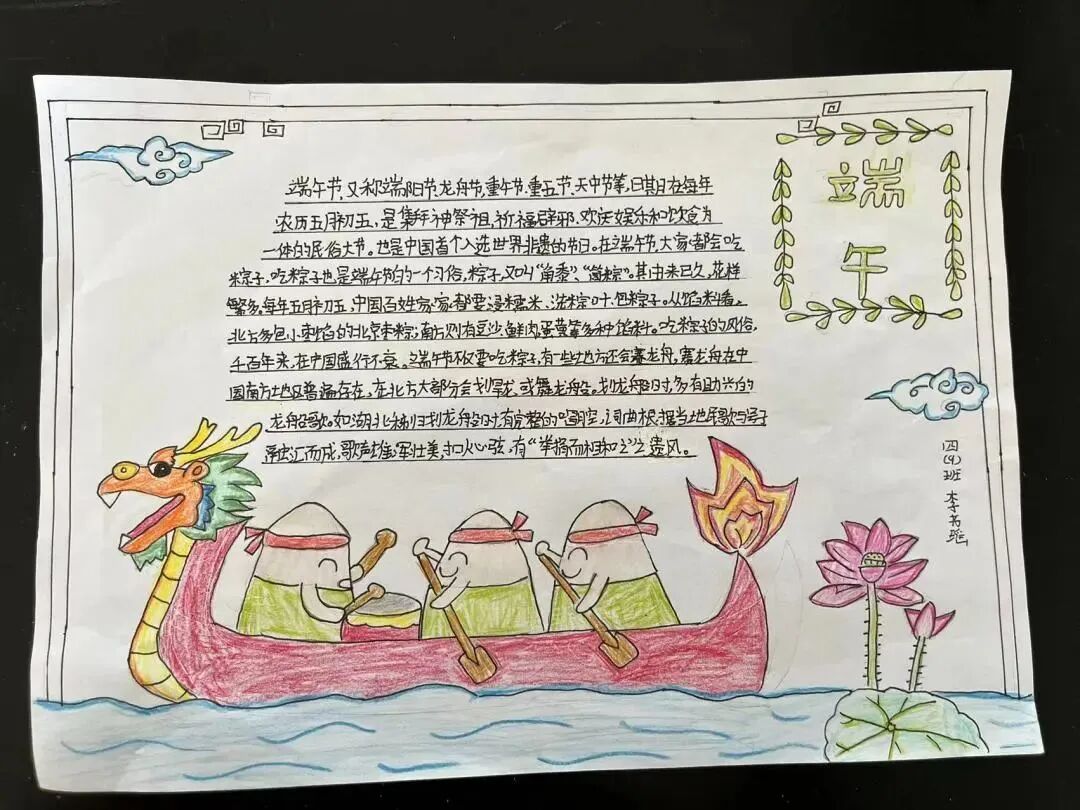 端午
端午节,又称端阳节,龙舟节,重午节,重五节,天中节等,日期在每年
农历五月初五,是集拜神祭祖,祈福辟邪、欢庆娱乐和饮食为
一体的民俗大节。也是中国首个入选世界非遗的节日。在端午节,大家都会吃
粽子,吃粽子也是端午节的一个习俗,粽子,又叫“角黍”、“筒粽”。其由来已久,花样
繁多。每年五月初五,中国百姓家家都要浸糯米、洗粽叶、包粽子。从馅料看,
北方多包小枣馅的北京枣粽;南方则有豆沙,鲜肉,蛋黄等多种馅料。吃粽子的风俗,
千百年来,在中国盛行不衰。端午节不仅要吃粽子,有一些地方还会赛龙舟,赛龙舟在中
国南方地区普遍存在,在北方大部分会划旱龙,或舞龙船。划龙船时,多有助兴的
龙船歌。如湖北秭归划龙船时,有完整的唱腔,词曲根据当地民歌与号子
融汇而成,歌声雄浑壮美,扣人心弦,有“举揖而相和之”之遗风。
四(4)班 李书